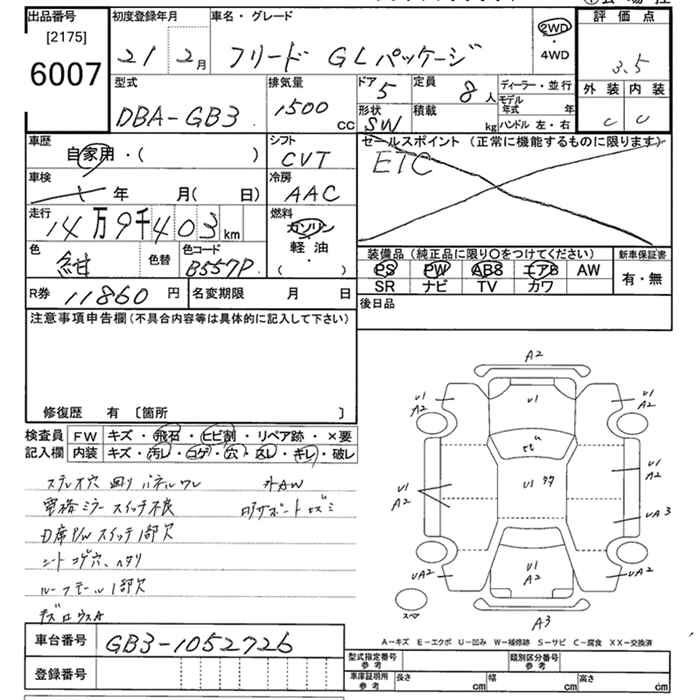 出品番号 初度登録年月 車名・グレード 評価点
[2175] 21 2月 フリード GLパッケージ 2WD・4WD 3.5
6007
型式 排気量 ドア 5 定員 8人 ディーラー・並行 外装 内装
DBA-GB3 1500cc 形状 SW 積載 kg モデル年式 年 C C
ハンドル 左・右
車歴 シフト セールスポイント (正常に機能するものに限ります)
自家用・( ) CVT ETC
車検 冷房
年 月( 日) AAC
走行 燃料
14万9千403km ガソリン
軽油
( ・ )
色 紺 色替 色コード B557P 装備品 (純正品に限り〇をつけてください) 新車保証書
PS PW ABS エアB AW 有・無
SR ナビ TV カワ
R券 11860円 名変期限 月 日 後日品
注意事項申告欄(不具合内容等は具体的に記入して下さい)
修復歴 有 〔箇所 〕
検査員 FW キズ・飛石・ヒビ割・リペア跡・×要
記入欄 内装 キズ・汚レ・コゲ・穴・スレ・キレ・破レ
ステレオ穴 回りパネルワレ 外AW
電格ミラースイッチ不良
D席P/Wスイッチ1部欠
シートコゲ穴、ヘタリ
ルーフモール1部欠
A2
U1 A2 U1 U1 A2
U1 A2 U1 U1 A2
UA3
UA2 U1 A2 UA2
スペア
A3
A-キズ E-エクボ U-凹み W-補修跡 S-サビ C-腐食 XX-交換済
車台番号 GB3-1052726
登録番号
型式指定番号 参考 類別区分番号 参考
車庫証明用 参考 長さ cm 幅 cm 高さ cm